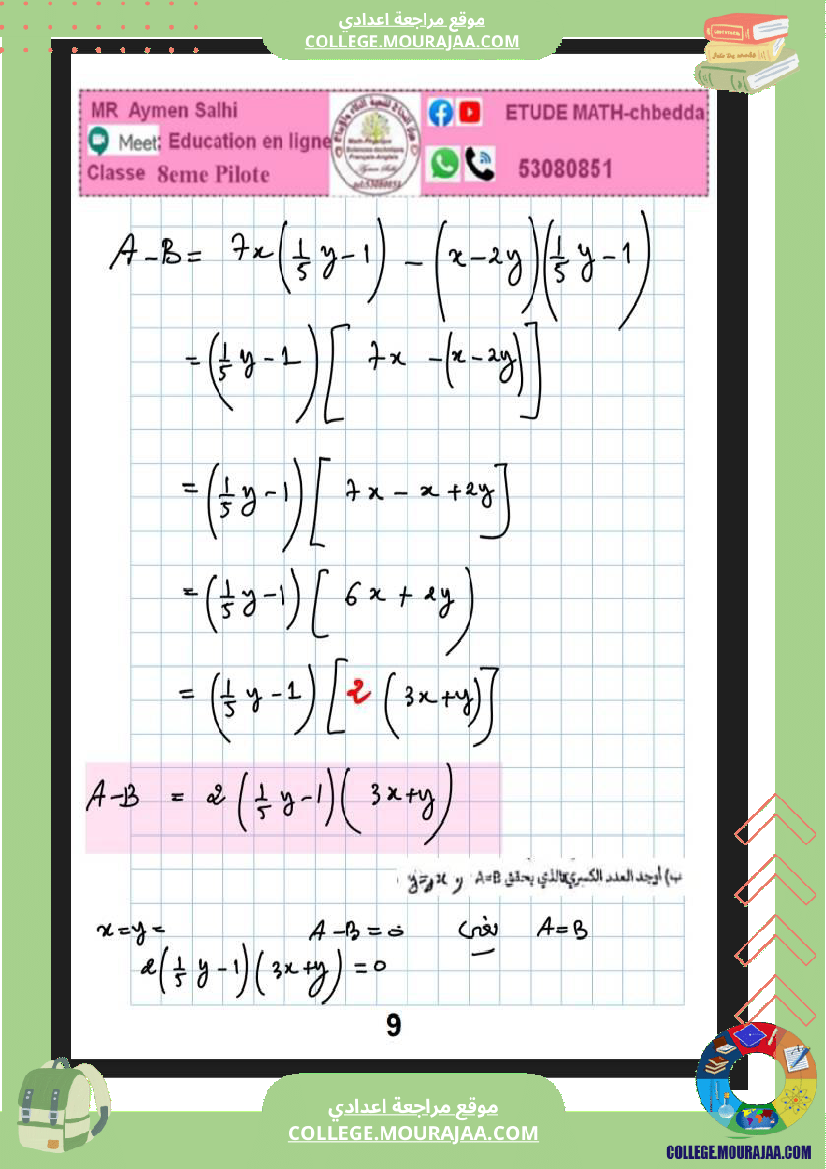 موقع مراجعة اعدادي
COLLEGE.MOURAJAA.COM
MR Aymen Salhi
Meet: Education en ligne
Classe 8eme Pilote
ETUDE MATH-chbedda
53080851
A-B = 7x(1/5 y-1) - (x-2y)(1/5 y-1)
= (1/5 y-1)[7x -(x-2y)]
= (1/5 y-1)[7x - x+2y]
= (1/5 y-1)[6x + 2y)
= (1/5 y-1)[2(3x+y)]
A-B = 2(1/5 y-1)(3x+y)
ب) أوجد العدد الكسري x الذي يحقق A=B و y=x
x=y= A-B=0 يعني A=B
2(1/5 y-1)(3x+y)=0
9
موقع مراجعة اعدادي
COLLEGE.MOURAJAA.COM
COLLEGE.MOURAJAA.COM